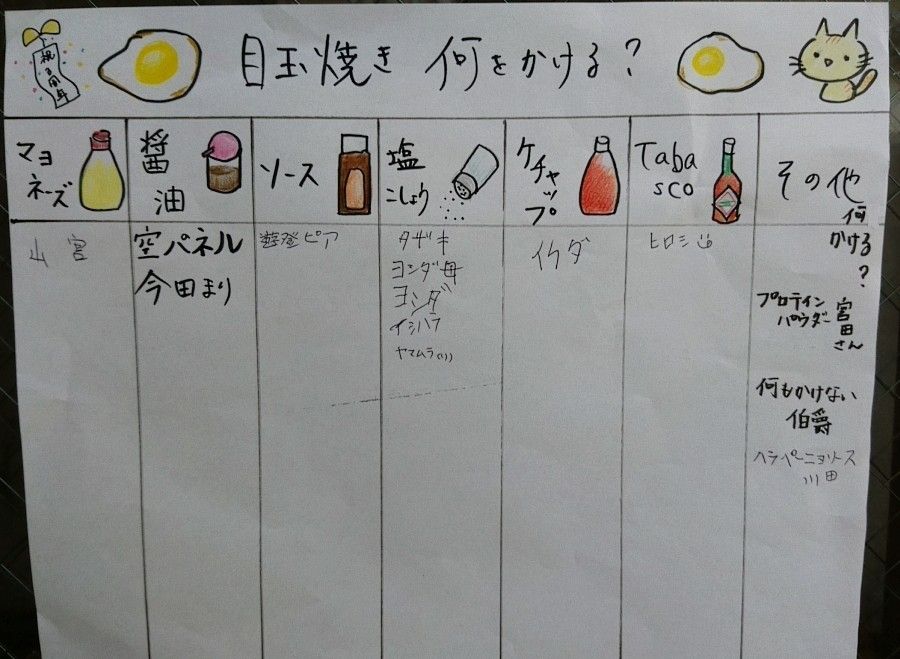 祝
百周年
目玉焼き 何をかける?
マヨ
ネーズ
醤
油
ソース
塩
こしょう
ケチャップ
Taba
sco
その他
何
かける
?
山宮
空パネル
今田まり
遊登ピア
タザキ
ヨンダ母
ヨンダ
イシハラ
ヤマムラ
イケダ
ヒロシ
プロテイン
パウダー
宮田さん
何もかけない
伯爵
ハラペーニョソース
川田